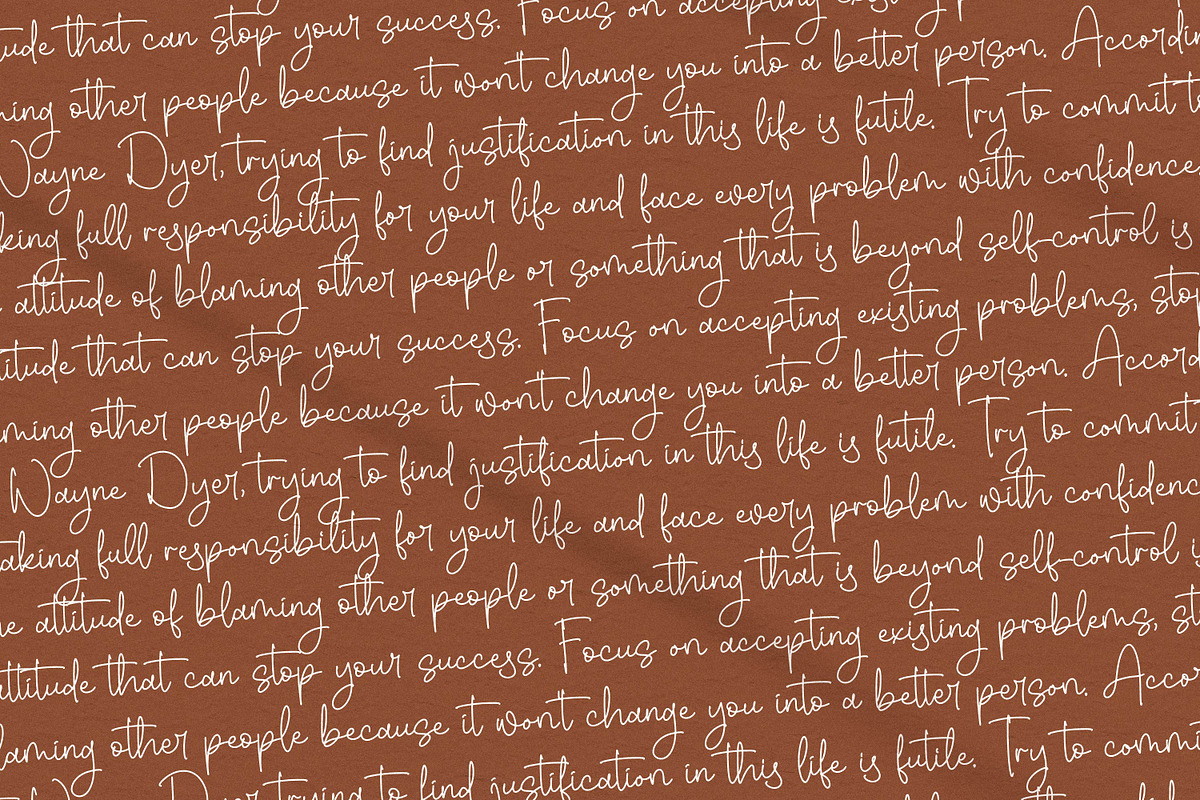 tude that can stop your success. Focus on accepting
ming other people because it won't change you into a better person. Accordin
Wayne Dyer, trying to find justification in this life is futile. Try to commit to
king full responsibility for your life and face every problem with confidence.
attitude of blaming other people or something that is beyond self-control is
titude that can stop your success. Focus on accepting existing problems, stop
ming other people because it won't change you into a better person. Accord
Wayne Dyer, trying to find justification in this life is futile. Try to commit
taking full responsibility for your life and face every problem with confidenc
e attitude of blaming other people or something that is beyond self-control is
attitude that can stop your success. Focus on accepting existing problems, st
laming other people because it won't change you into a better person. Acco
Dyer, trying to find justification in this life is futile. Try to commi